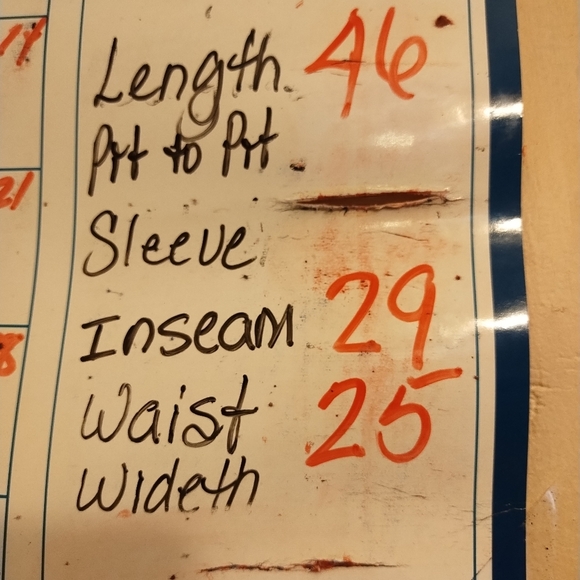 Length 46
Pit to Pit
Sleeve
Inseam 29
Waist 25
Wideth